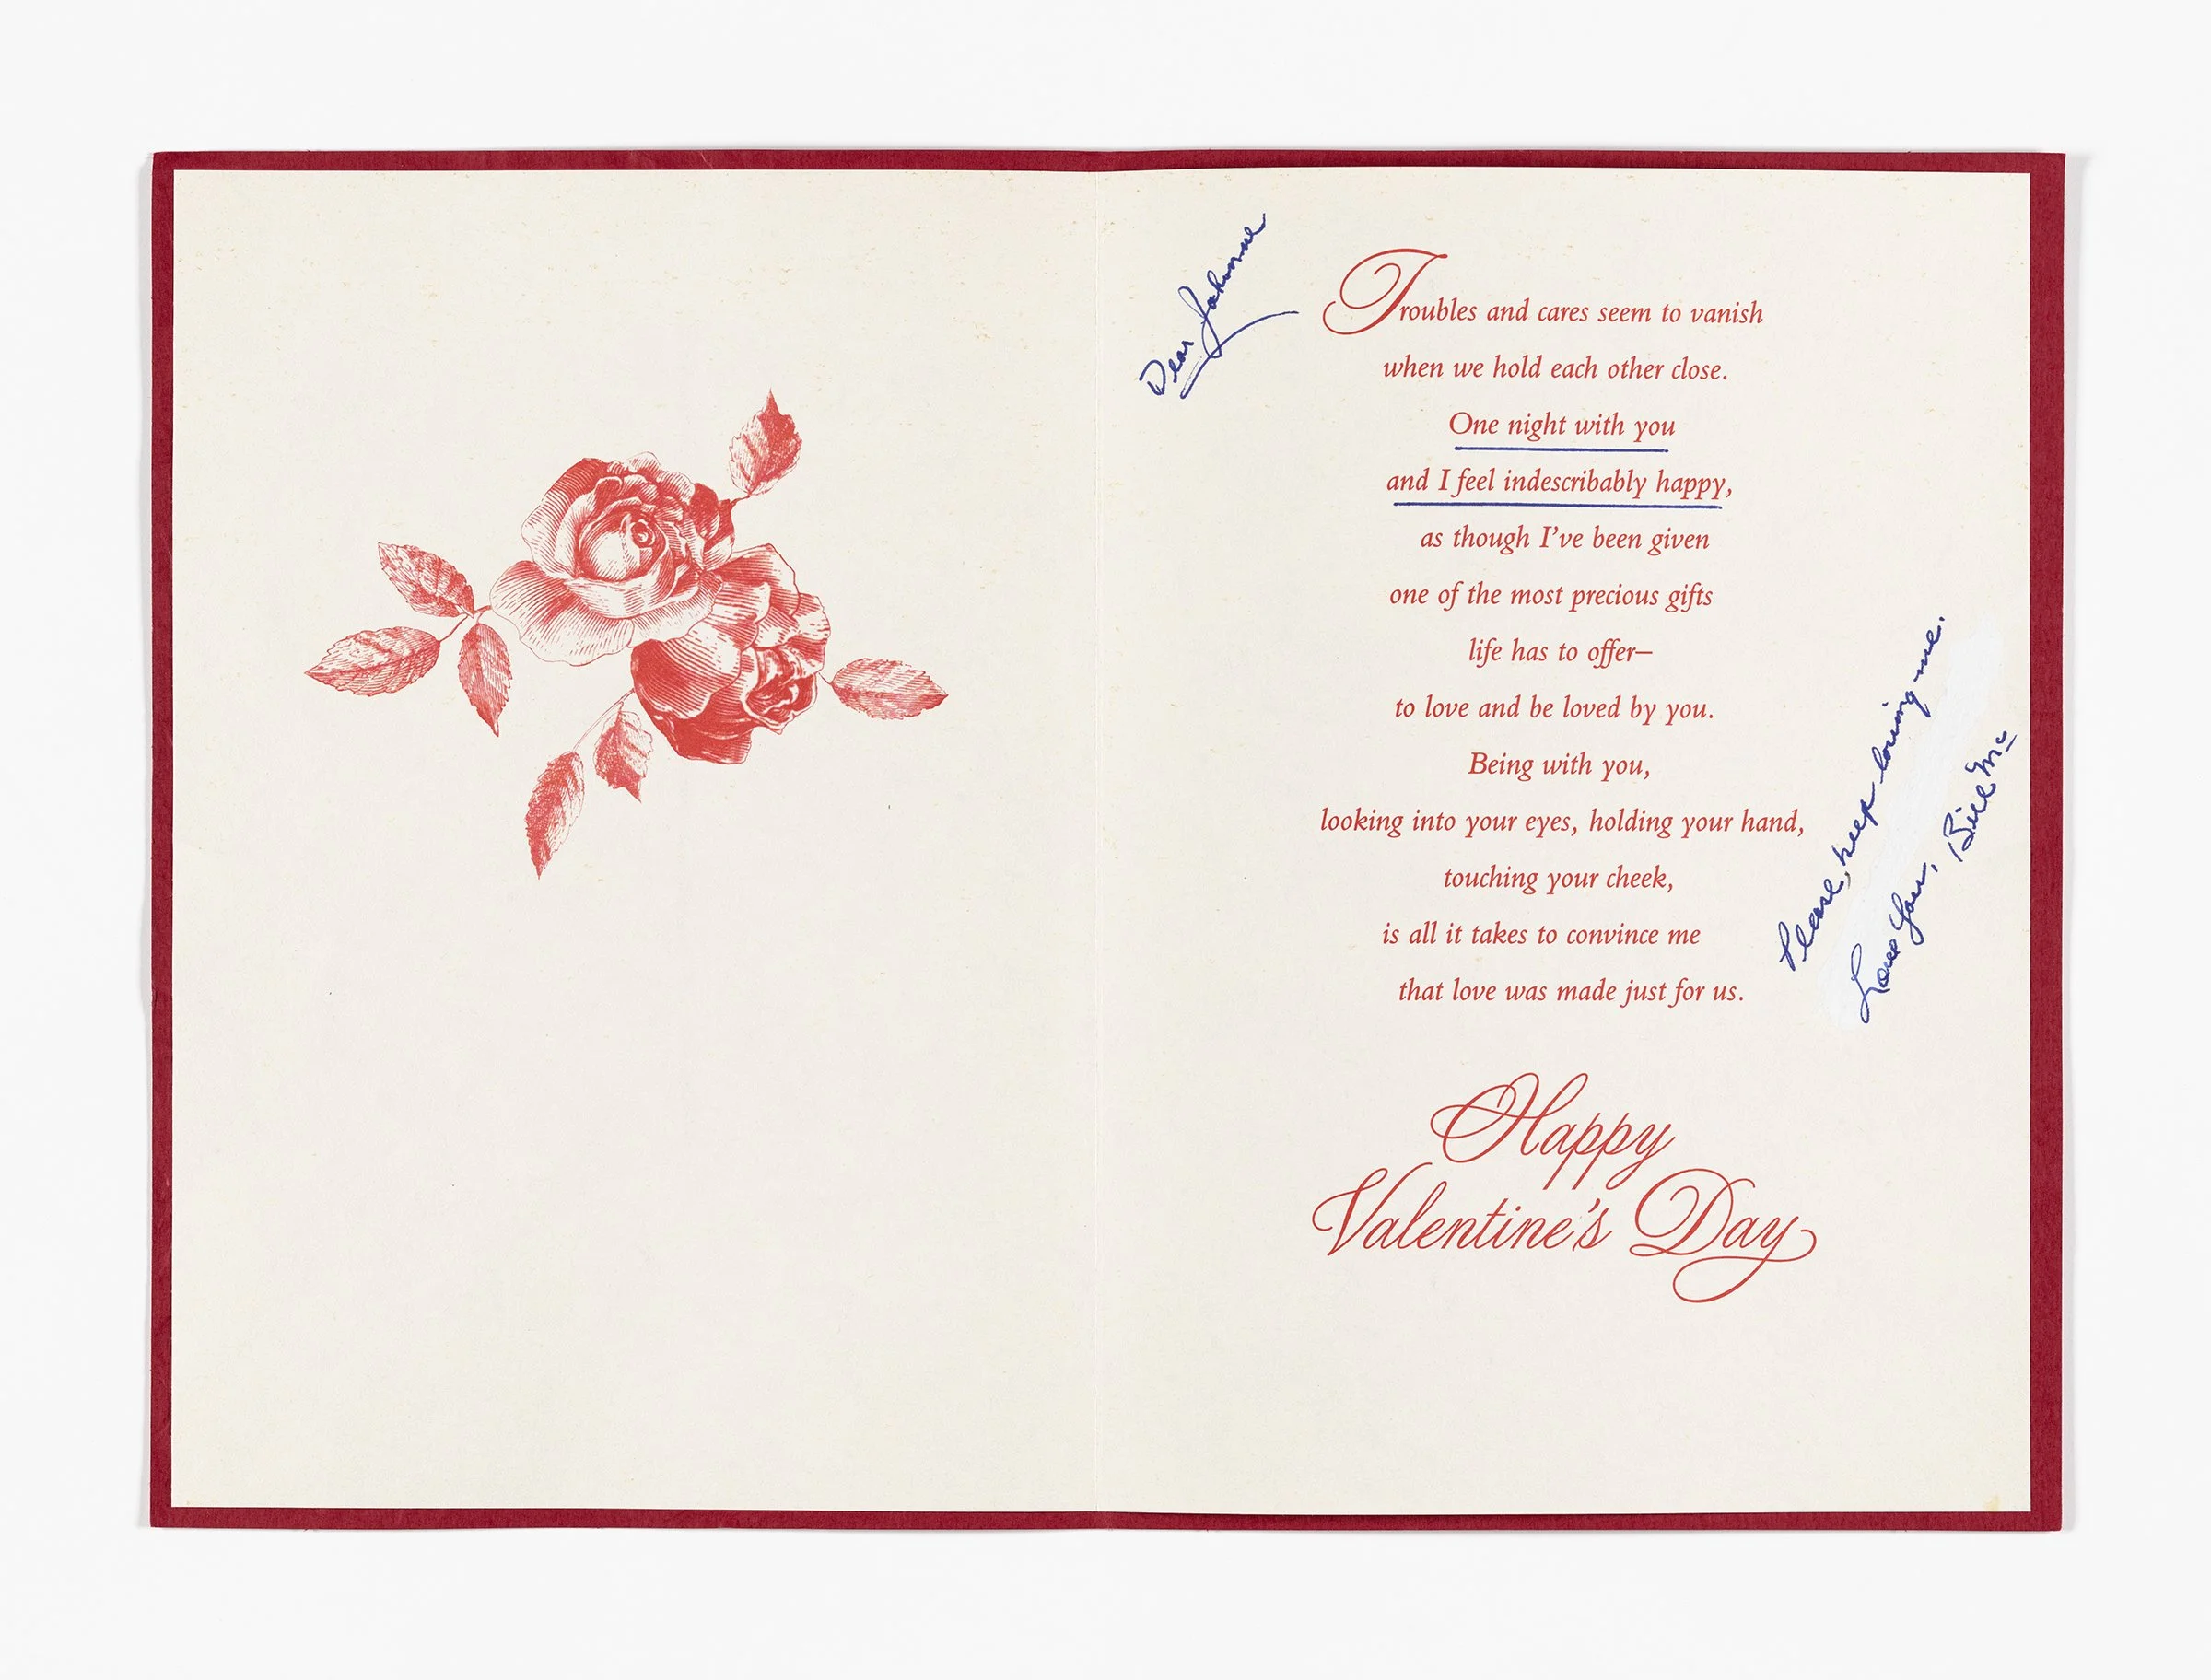 Dear Johnnie
Troubles and cares seem to vanish
when we hold each other close.
One night with you
and I feel indescribably happy,
as though I've been given
one of the most precious gifts
life has to offer–
to love and be loved by you.
Being with you,
looking into your eyes, holding your hand,
touching your cheek,
is all it takes to convince me
that love was made just for us.
Please, keep loving me.
Love You, Bill Mc
Happy
Valentine's Day